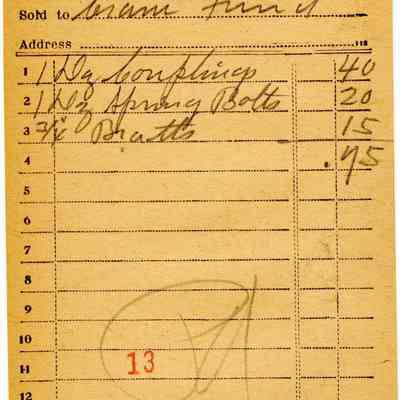 Sold to Crane Fund
Address
1 1 Dz Couplings 40
2 1 Dz Spring Bolts 20
3 2/4 15
4 .75
5
6
7
8
9
10
11 13
12